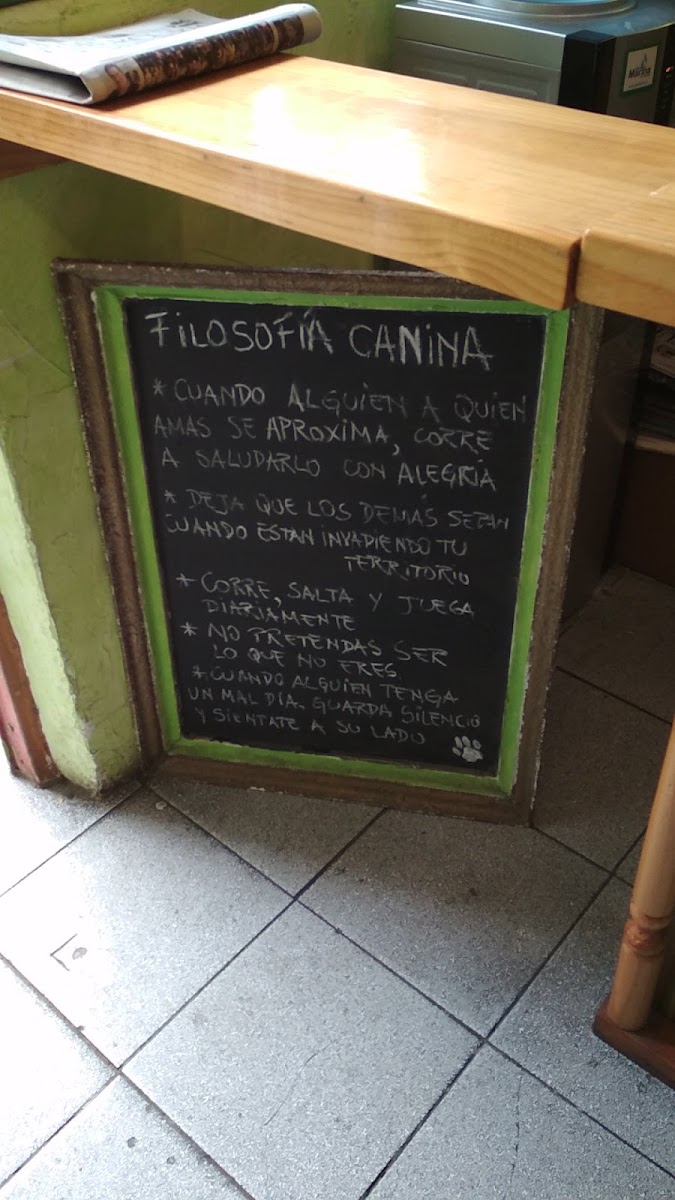 Marina
FiLOSOFÍA CANiNA
* CUANDO ALGUiEN A QUiEN
AMAS SE APROXIMA, CORRE
A SALUDARLO CON ALEGRIA
* DEJA QUE LOS DEMÁS SEPAN
CUANDO ESTAN iNVADIENDO TU
TERRITORIO
* CORRE, SALTA Y JUEGA
DIARIAMENTE
* NO PRETENDAS SER
LO QUE NO ERES
* CUANDO ALGUIEN TENGA
UN MAL DÍA. GUARDA SILENCIO
Y SIENTATE A SU LADO